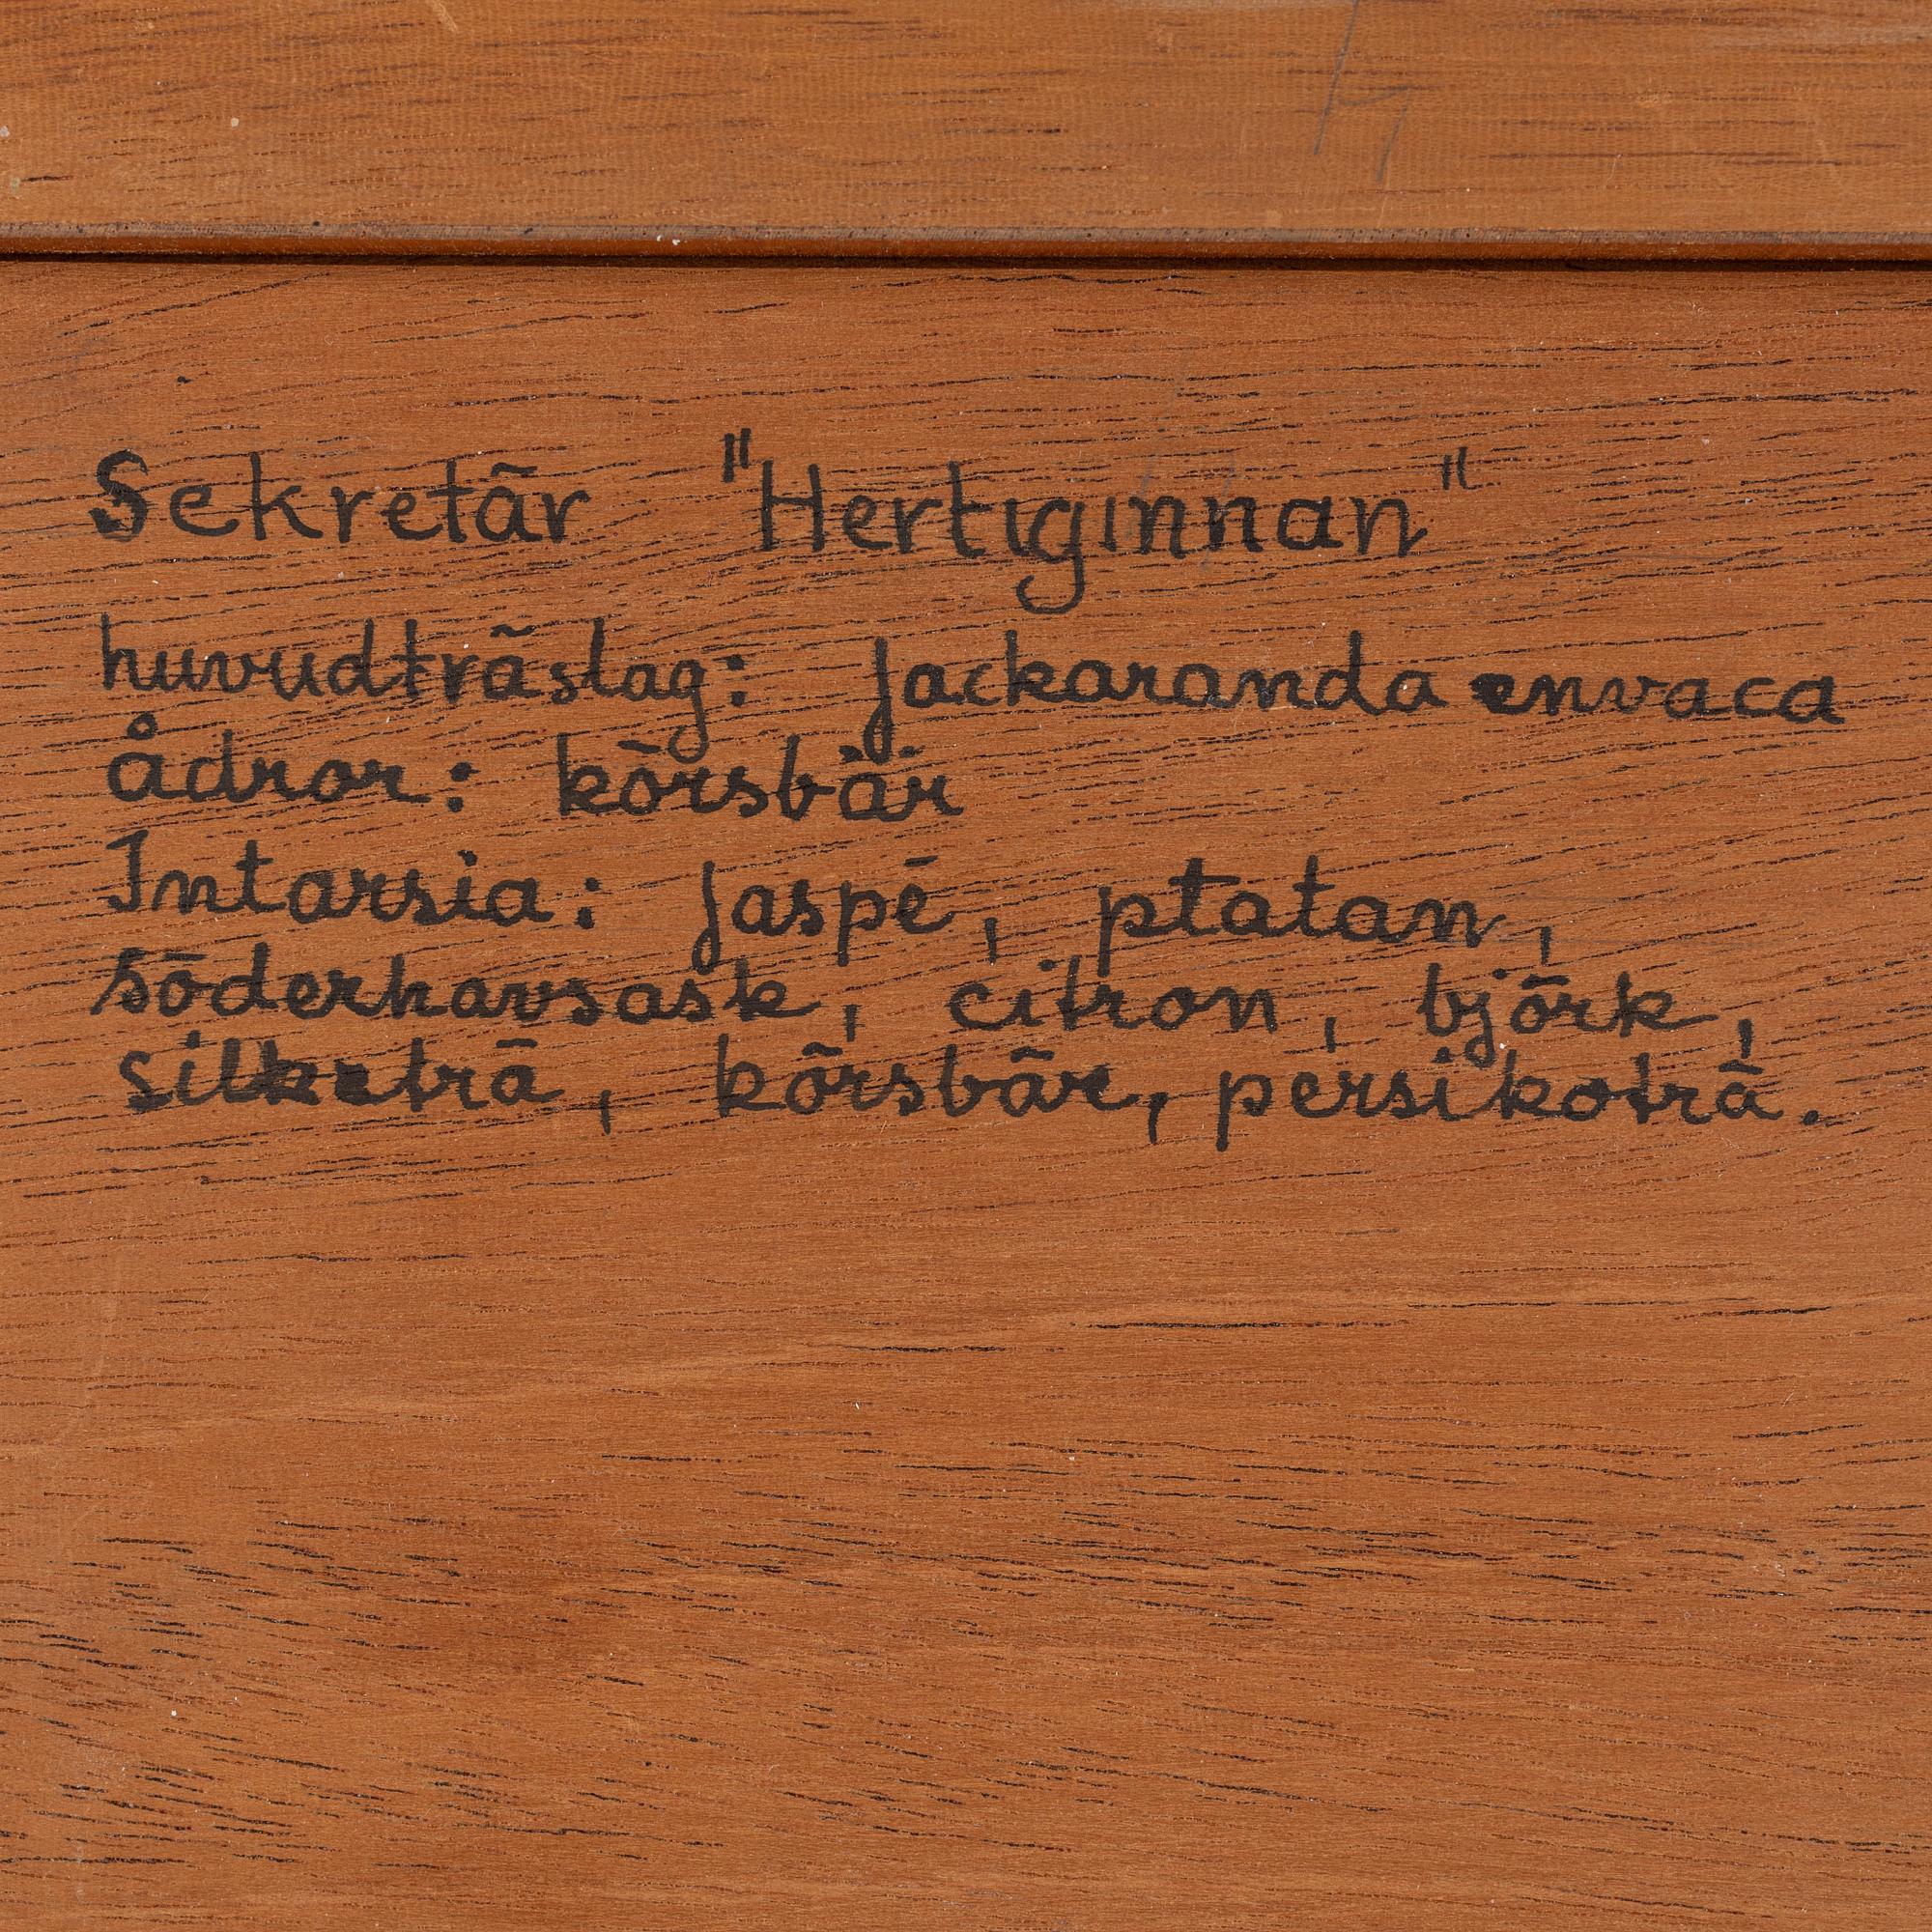 Sekretär "Hertiginnan"
huvudträslag: jackaranda envaca
Ådror: körsbär
Intarsia: jaspé, platan,
söderhavsask, citron, björk,
silketrä, körsbär, persikoträ.